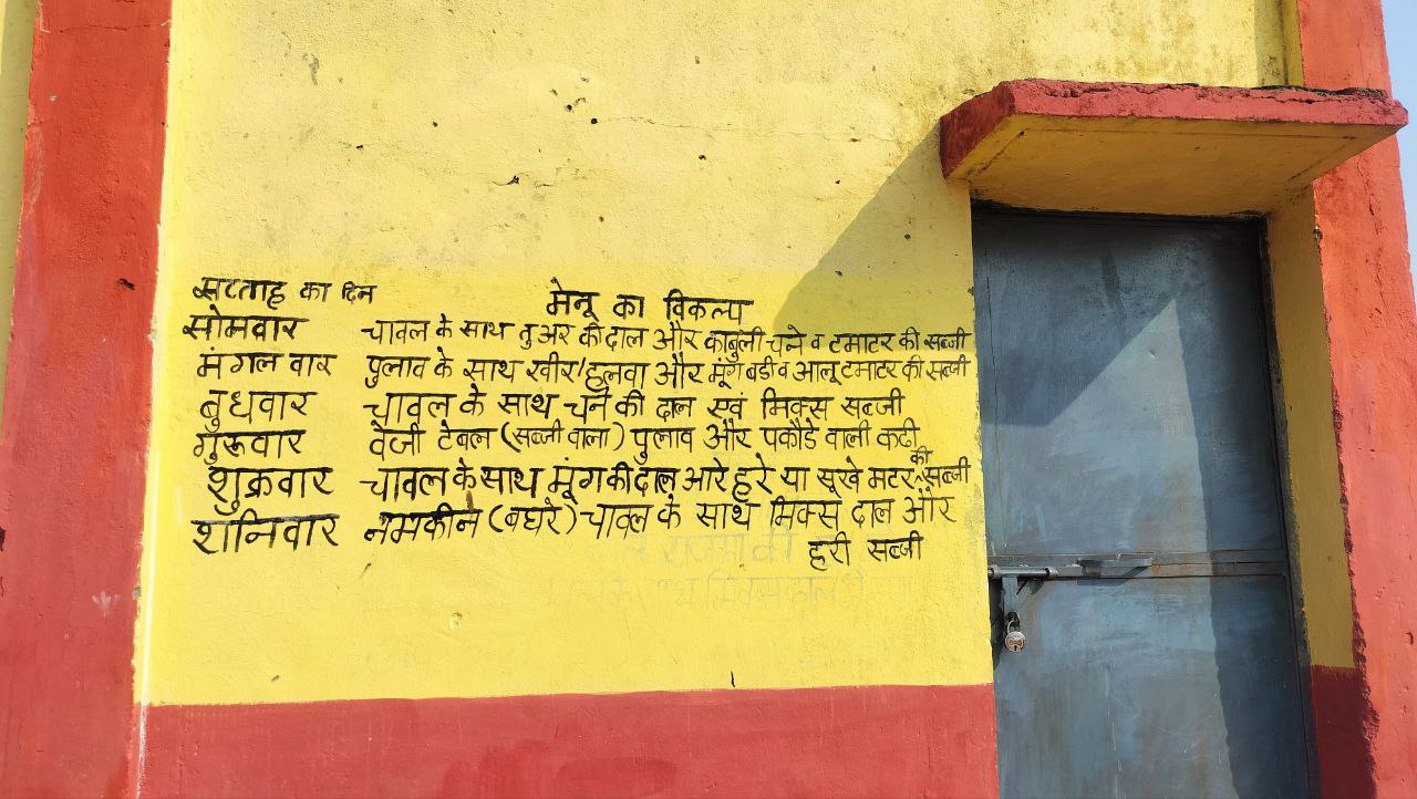 सप्ताह का दिन मेनू का विकल्प
सोमवार चावल के साथ तुअर की दाल और काबुली चने व टमाटर की सब्जी
मंगल वार पुलाव के साथ खीर/हलवा और मूंग बडी व आलू टमाटर की सब्जी
बुधवार चावल के साथ चने की दाल एवं मिक्स सब्जी
गुरूवार वेजी टेबल (सब्जी वाला) पुलाव और पकौडे वाली कढी
शुक्रवार चावल के साथ मूंग की दाल आरे हरे या सूखे मटर की सब्जी
शनिवार नमकीन (बघरे) चावल के साथ मिक्स दाल और
हरी सब्जी